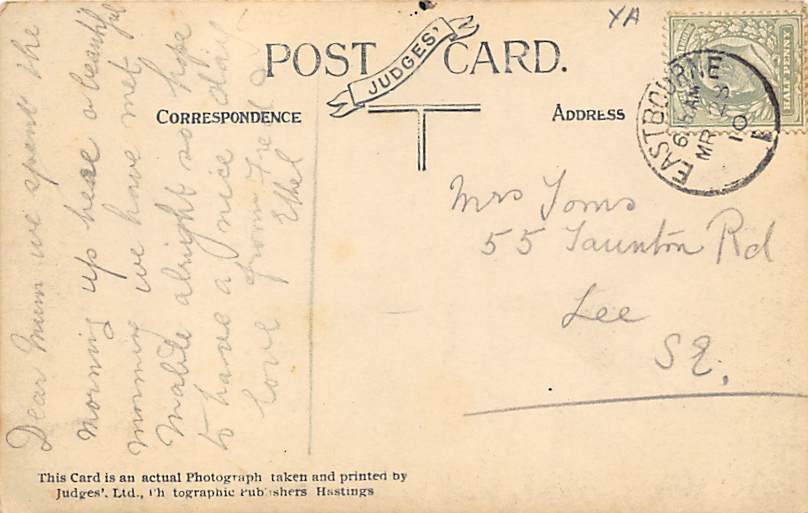 YA
POST CARD.
JUDGES'
CORRESPONDENCE
ADDRESS
HALF PENNY
EASTBOURNE
MR 28
10
Dear Mum we spent the
morning up here a beautiful
morning we have met
Maude alright so hope
to have a nice day
love from Fred &
Ethel
Mrs Toms
55 Taunton Rd
Lee
SE.
This Card is an actual Photograph taken and printed by
Judges'. Ltd., Ph tographic Publishers Hastings